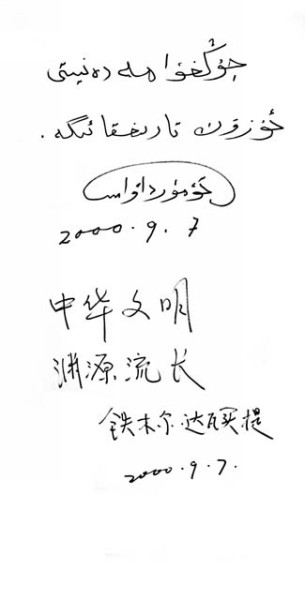 جۇڭخۇا مەدەنىيىتى
ئۇزۇن تارىخقا ئىگە.
تۆمۈر داۋامەت
2000.9.7
中华文明
渊源流长
铁木尔·达瓦买提
2000.9.7.